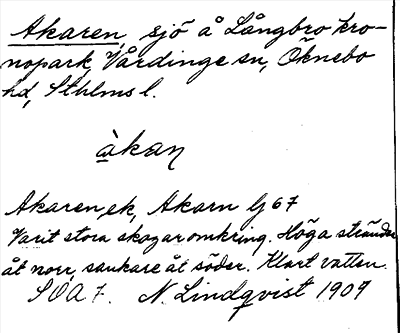 Akaren, sjö å Långbro kro-
nopark, Vårdinge sn, Öknebo
hd, Sthlms l.
àkaŋ
Akaren ek, Akarn Gj 67
Varit stora skogar omkring. Höga stränder
åt norr, sankare åt söder. Klart vatten.
SOA 7. N. Lindqvist 1909